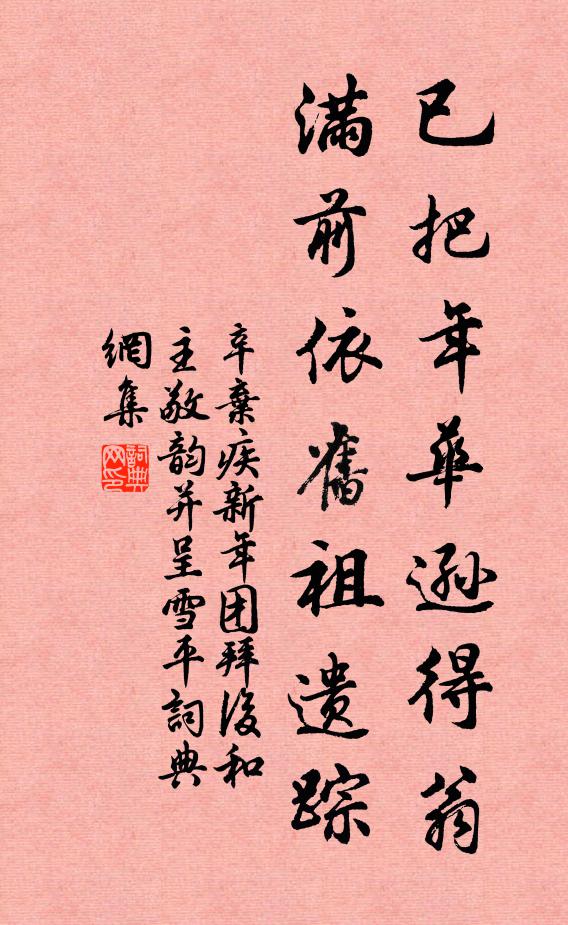 已把年华逊得翁
满前依舊祖遗踪
辛棄疾新年团拜後和
主敬韵并呈雪平詞典
網集
詞典网印